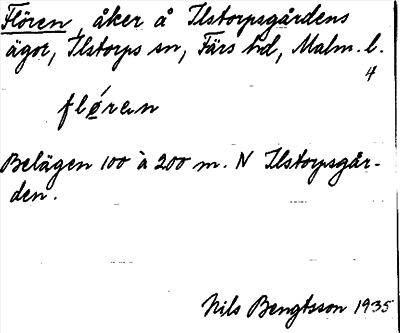 Flören, åker å Ilstorpsgårdens
ägor, Ilstorps sn, Färs hd, Malm. l.
4
flǿrɐn
Belägen 100 à 200 m. N Ilstorpsgår-
den.
Nils Bengtsson 1935